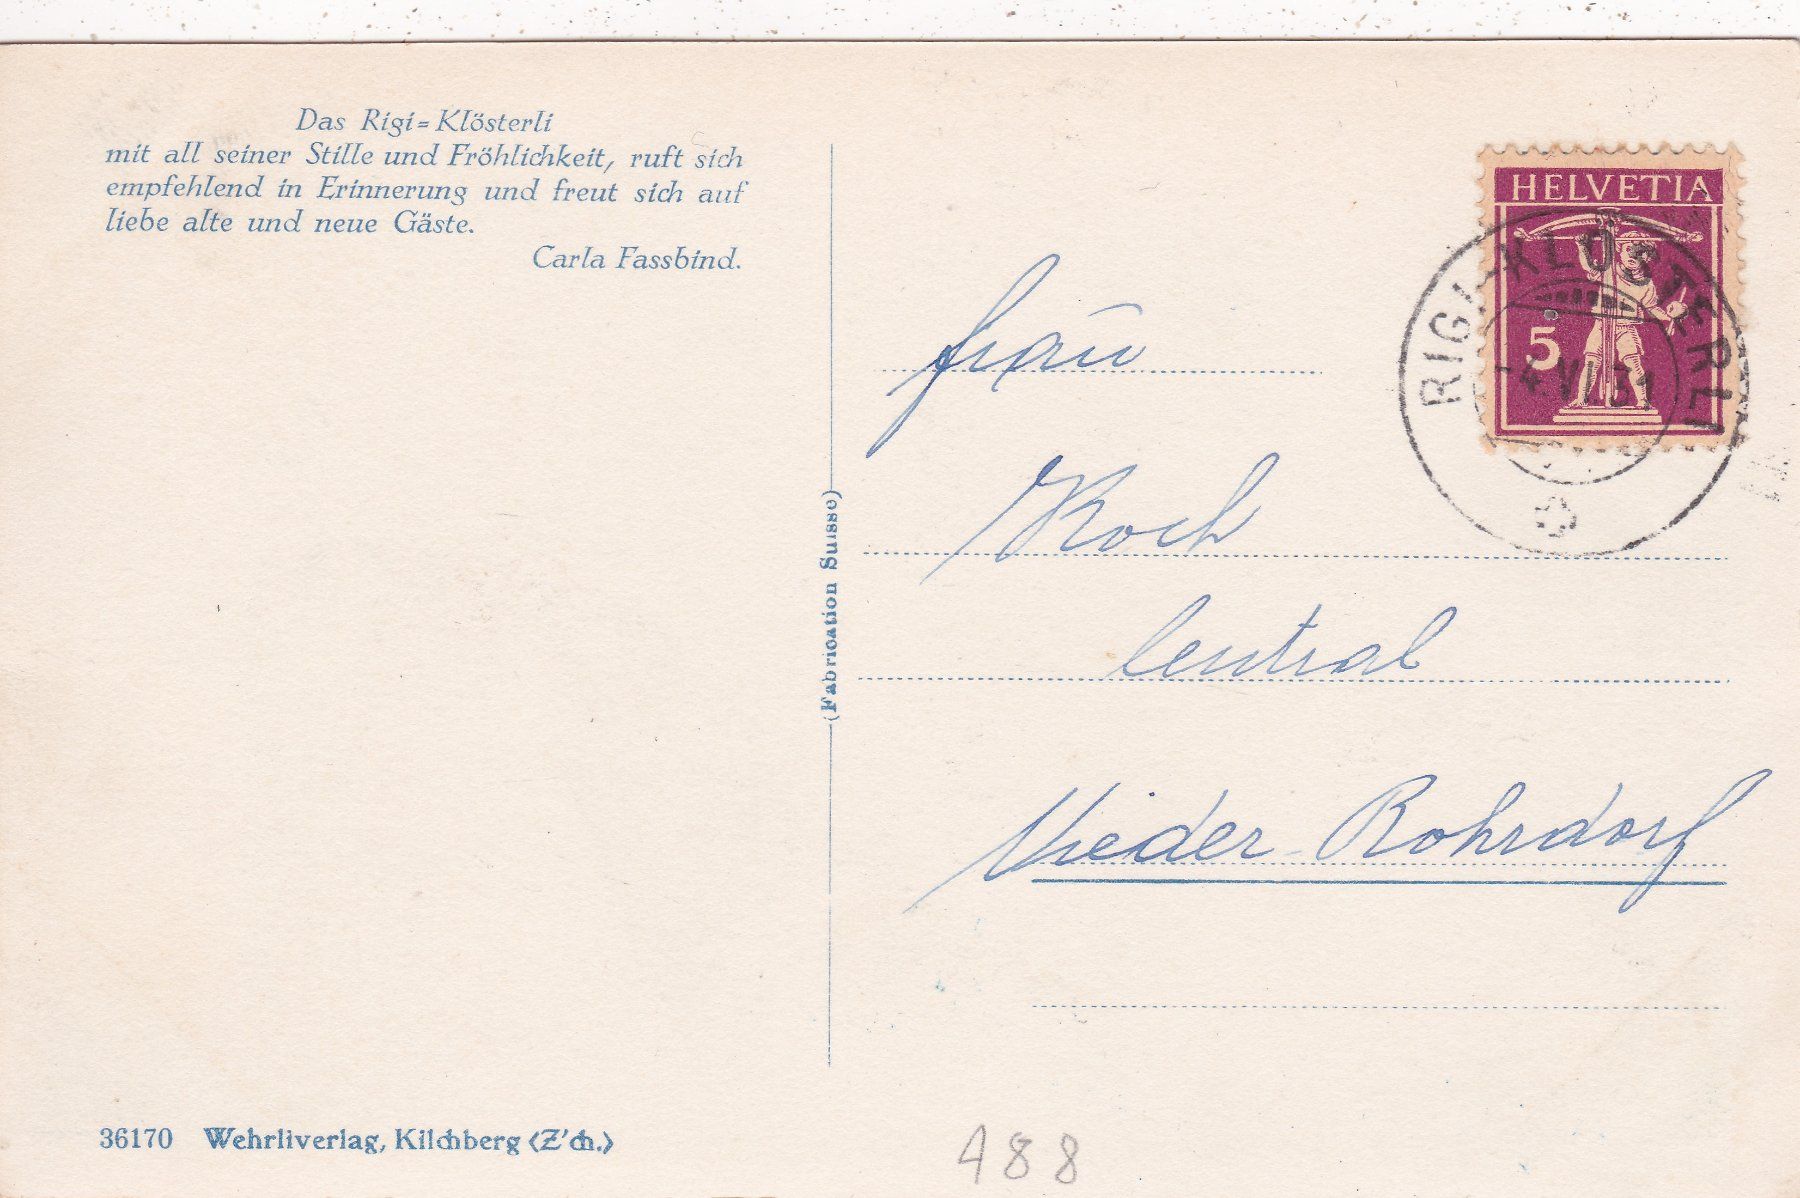 Das Rigi=Klösterli
mit all seiner Stille und Fröhlichkeit, ruft sich
empfehlend in Erinnerung und freut sich auf
liebe alte und neue Gäste.
Carla Fassbind.
HELVETIA
5
RIGI-KLÖSTERLI
4.VI.31
Frau
Koch
Central
Nieder-Rohrdorf
(Fabrication Suisse)
36170 Wehrliverlag, Kilchberg (Z'ch.)
488